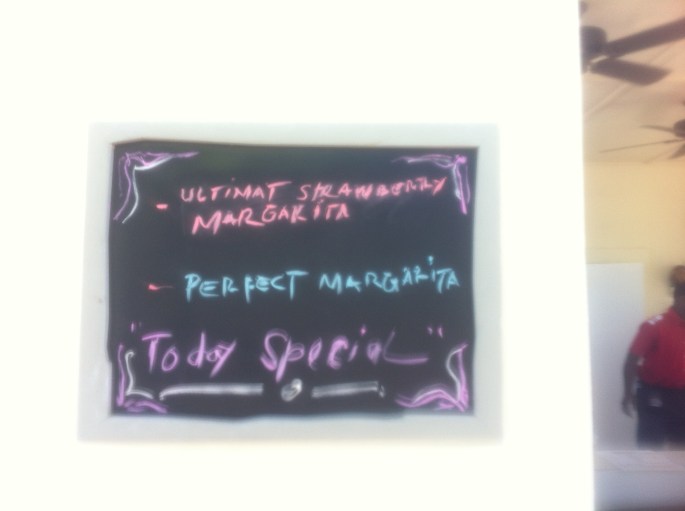 - ULTIMAT STRAWBERRY
MARGARITA
- PERFECT MARGARITA
"Today Special"